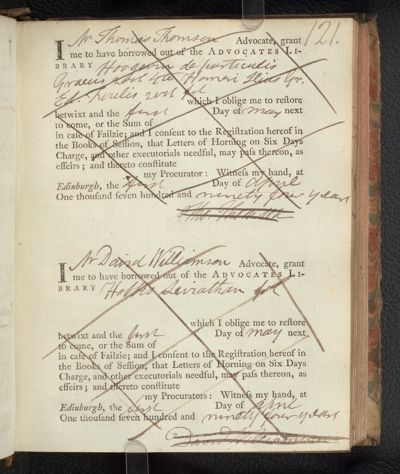 121.
I Mr Thomas Thomson Advocate, grant
me to have borrowed out of the ADVOCATES LI-
BRARY Hoogeveen de particulis
Graecis 2 vol 4to Homeri Ilias Gr.
Ed. 2 vol
which I oblige me to restore
betwixt and the first Day of May next
to come, or the Sum of
in case of Failzie; and I consent to the Registration hereof in
the Books of Session, that Letters of Horning on Six Days
Charge, and other executorials needful, may pass thereon, as
effeirs; and thereto constitute
my Procurators: Witness my hand, at
Edinburgh, the first Day of April
One thousand seven hundred and ninety four years
Tho. Thomson
I Mr David Williamson Advocate, grant
me to have borrowed out of the ADVOCATES LI-
BRARY Hobbs Leviathan fol
which I oblige me to restore
betwixt and the first Day of May next
to come, or the Sum of
in case of Failzie; and I consent to the Registration hereof in
the Books of Session, that Letters of Horning on Six Days
Charge, and other executorials needful, may pass thereon, as
effeirs; and thereto constitute
my Procurators: Witness my hand, at
Edinburgh, the first Day of April
One thousand seven hundred and ninety four years
David Williamson